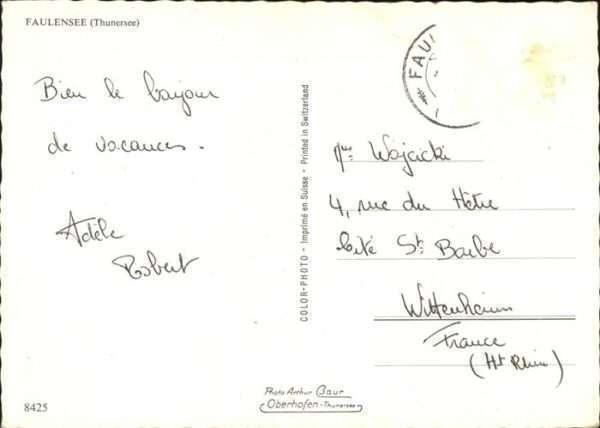 FAULENSEE (Thunersee)
Bien le bonjour
de vacances.
Adèle
Robert
COLOR-PHOTO - Imprimé en Suisse - Printed in Switzerland
FAU
Wojcicki
4, rue du Hêtre
Cité Ste Barbe
Wittenheim
France
(Ht Rhin)
Photo Arthur Baur
Oberhofen-Thunersee
8425